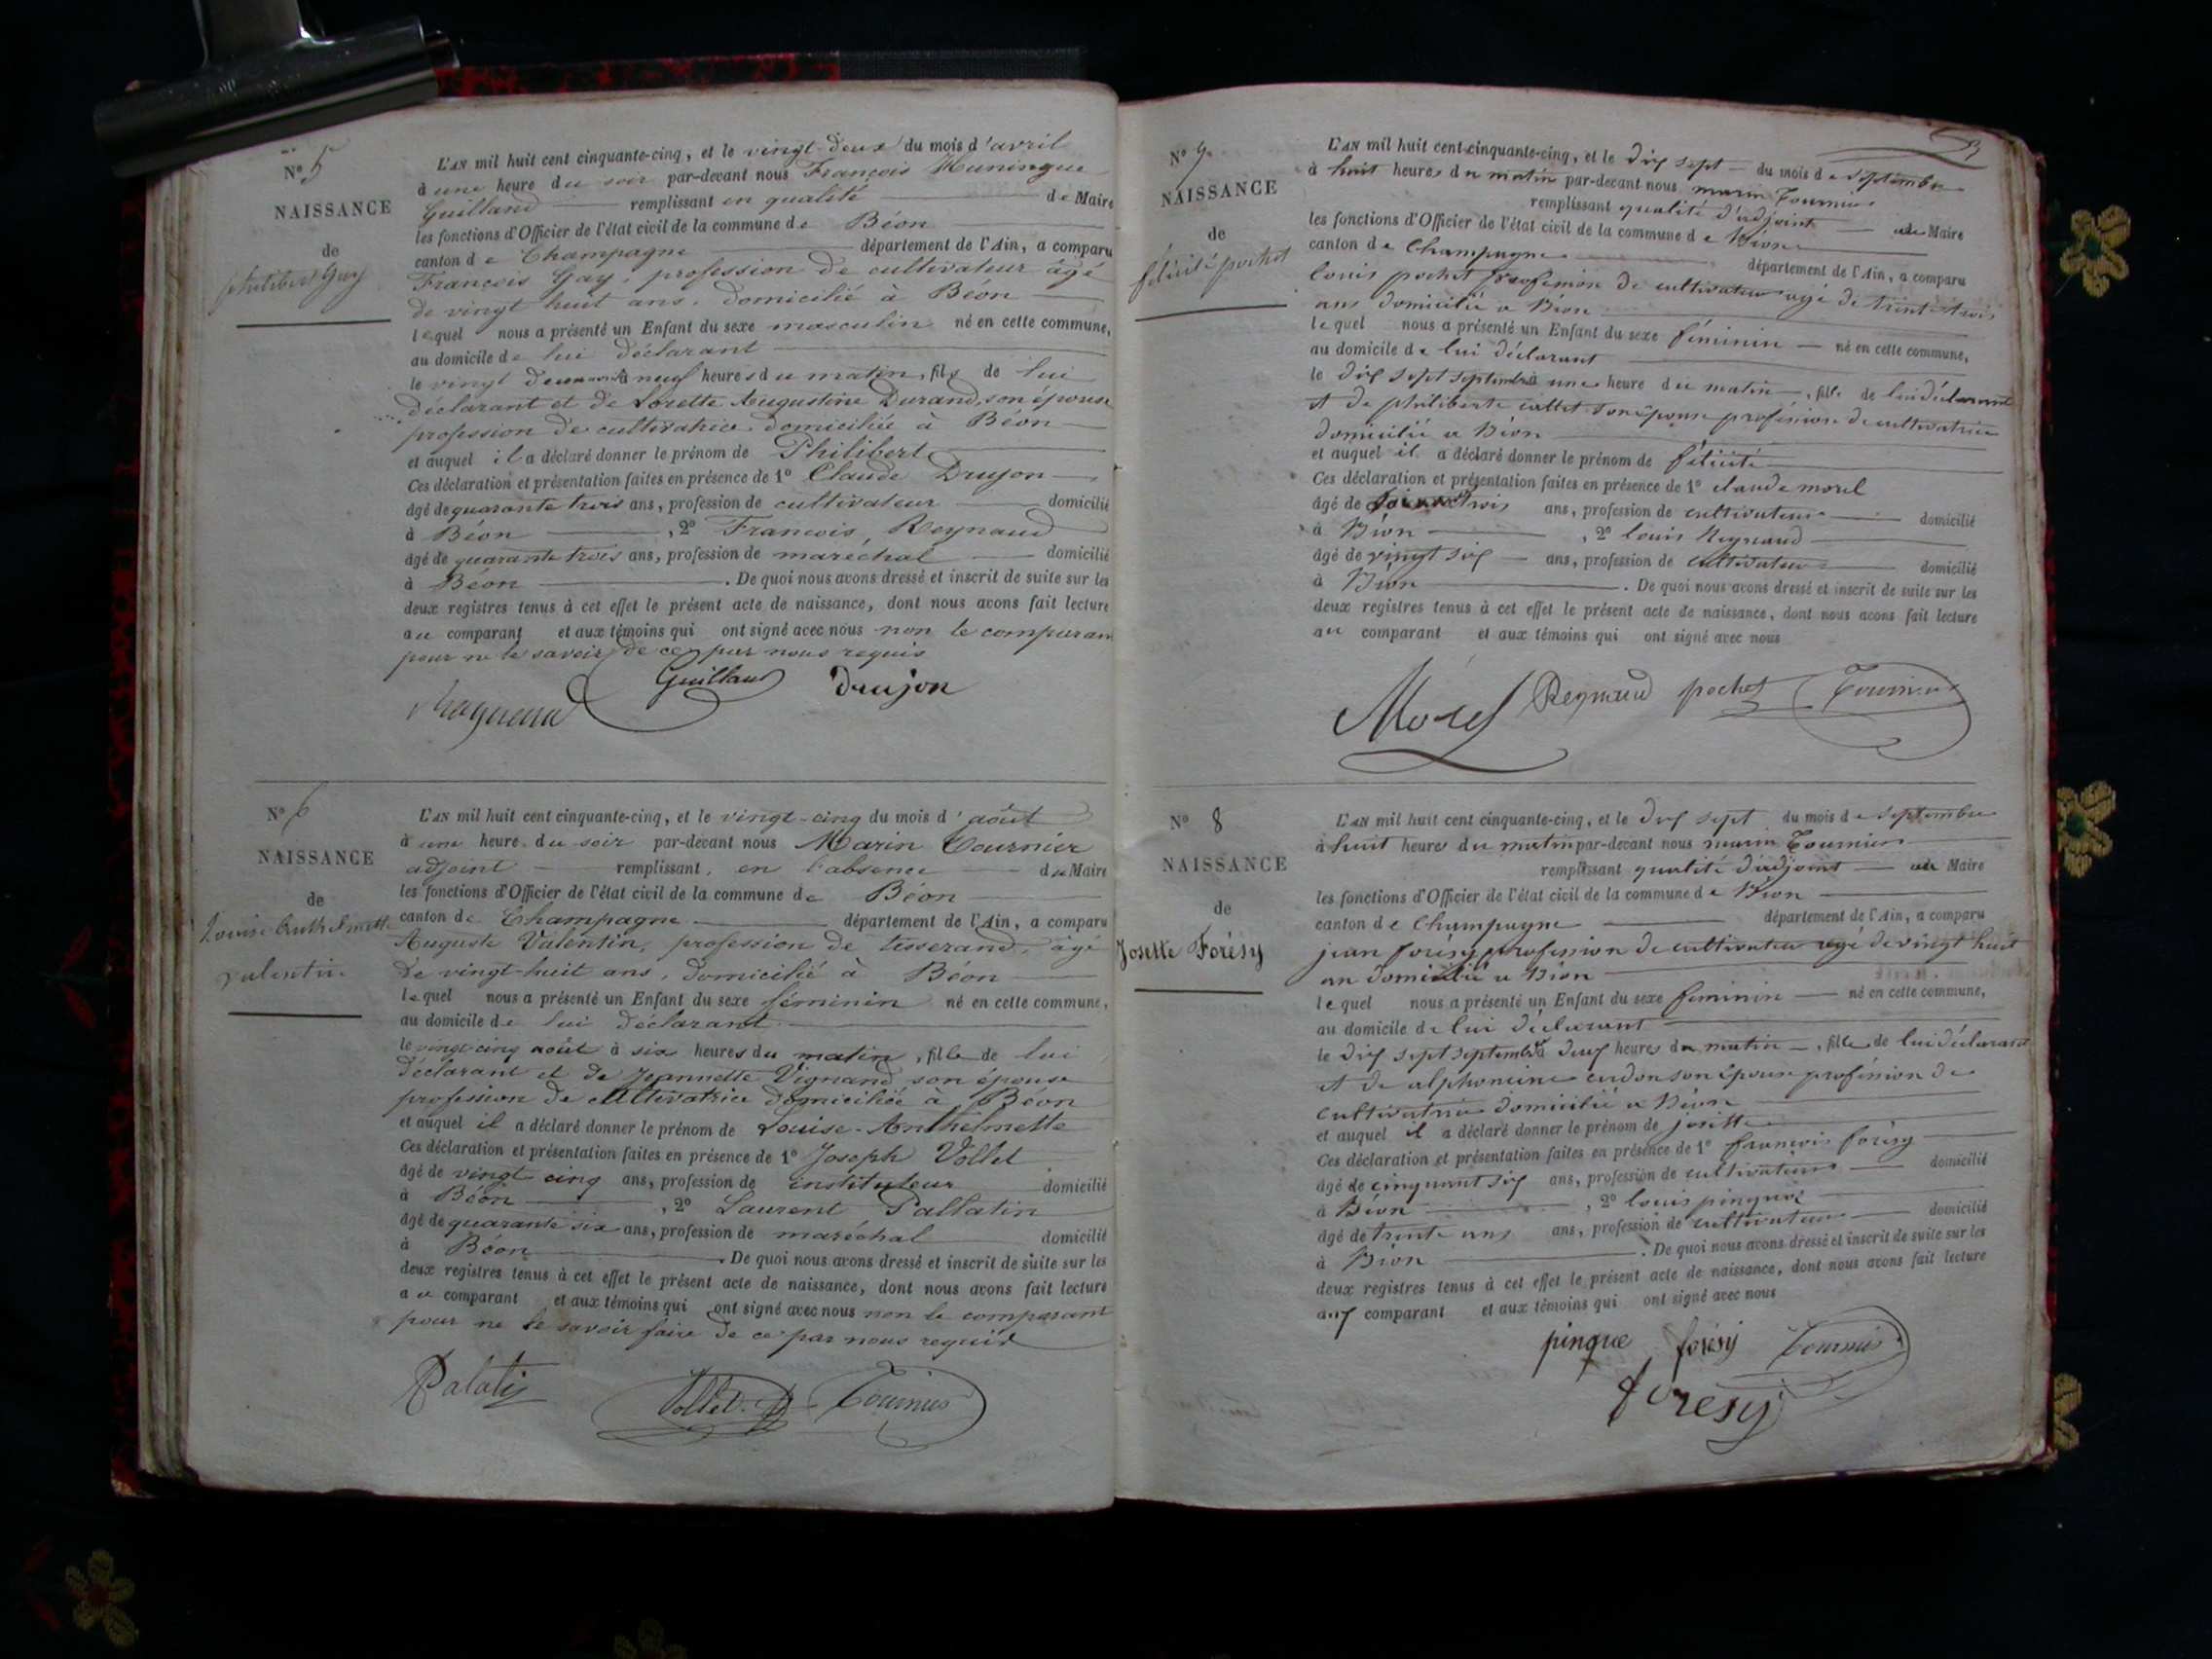 N° 5
NAISSANCE
de
philibert Gay
L'AN mil huit cent cinquante-cinq, et le vingt-deux du mois d'avril
à une heure du soir par-devant nous François Huningue
Guilland remplissant en qualité de Maire
les fonctions d'Officier de l'état civil de la commune de Béon
canton de Champagne département de l'Ain, a comparu
François Gay, profession de cultivateur âgé
de vingt huit ans, domicilié à Béon
lequel nous a présenté un Enfant du sexe masculin né en cette commune,
au domicile de lui déclarant
le vingt deux à neuf heures du matin, fils de lui
déclarant et de Josette Augustine Durand, son épouse
profession de cultivatrice domiciliée à Béon
et auquel il a déclaré donner le prénom de Philibert
Ces déclaration et présentation faites en présence de 1° Claude Drujon
âgé de quarante trois ans, profession de cultivateur domicilié
à Béon, 2° François Reynaud
âgé de quarante trois ans, profession de maréchal domicilié
à Béon. De quoi nous avons dressé et inscrit de suite sur les
deux registres tenus à cet effet le présent acte de naissance, dont nous avons fait lecture
au comparant et aux témoins qui ont signé avec nous non le comparan
pour ne le savoir de ce par nous requis
Guilland drujon
N° 6
NAISSANCE
de
Louise Anthelmette
valentin
L'AN mil huit cent cinquante-cinq, et le vingt-cinq du mois d'août
à une heure du soir par-devant nous Marin Tournier
adjoint remplissant, en l'absence du Maire
les fonctions d'Officier de l'état civil de la commune de Béon
canton de Champagne département de l'Ain, a comparu
Auguste Valentin, profession de tisserand, âgé
de vingt-huit ans, domicilié à Béon
lequel nous a présenté un Enfant du sexe féminin né en cette commune,
au domicile de lui déclarant
le vingt-cinq août à six heures du matin, fille de lui
déclarant et de Jeannette Vignand son épouse
profession de cultivatrice domiciliée à Béon
et auquel il a déclaré donner le prénom de Louise-Anthelmette
Ces déclaration et présentation faites en présence de 1° Joseph Vollet
âgé de vingt cinq ans, profession de instituteur domicilié
à Béon, 2° Laurent Pallatin
âgé de quarante six ans, profession de maréchal domicilié
à Béon. De quoi nous avons dressé et inscrit de suite sur les
deux registres tenus à cet effet le présent acte de naissance, dont nous avons fait lecture
au comparant et aux témoins qui ont signé avec nous non le comparant
pour ne le savoir faire de ce par nous requis
Palatin Vollet Tournier
N° 7
NAISSANCE
de
félicité pochet
L'AN mil huit cent cinquante-cinq, et le dix sept du mois de septembre
à huit heures du matin par-devant nous marin Tournier
remplissant qualité d'adjoint au Maire
les fonctions d'Officier de l'état civil de la commune de Béon
canton de Champagne département de l'Ain, a comparu
louis pochet profession de cultivateur agé de trente trois
ans domicilié a Béon
lequel nous a présenté un Enfant du sexe féminin né en cette commune,
au domicile de lui déclarant
le dix sept septembre à une heure du matin, fille de lui déclarant
et de philiberte callet son épouse profession de cultivatrice
domicilié a Béon
et auquel il a déclaré donner le prénom de félicité
Ces déclaration et présentation faites en présence de 1° claude morel
âgé de trois ans, profession de cultivateur domicilié
à Béon, 2° louis Reynaud
âgé de vingt six ans, profession de cultivateur domicilié
à Béon. De quoi nous avons dressé et inscrit de suite sur les
deux registres tenus à cet effet le présent acte de naissance, dont nous avons fait lecture
au comparant et aux témoins qui ont signé avec nous
Morel Reynaud pochet Tournier
N° 8
NAISSANCE
de
Josette Forésy
L'AN mil huit cent cinquante-cinq, et le dix sept du mois de septembre
à huit heures du matin par-devant nous marin Tournier
remplissant qualité d'adjoint au Maire
les fonctions d'Officier de l'état civil de la commune de Béon
canton de Champagne département de l'Ain, a comparu
jean forésy profession de cultivateur agé de vingt huit
an domicilié a Béon
lequel nous a présenté un Enfant du sexe féminin né en cette commune,
au domicile de lui déclarant
le dix sept septembre à deux heures du matin, fille de lui déclarant
et de alphoncine cudon son épouse profession de
cultivatrice domicilié a Béon
et auquel il a déclaré donner le prénom de josette
Ces déclaration et présentation faites en présence de 1° françois forésy
âgé de cinquant six ans, profession de cultivateur domicilié
à Béon, 2° louis pinque
âgé de trente ans ans, profession de cultivateur domicilié
à Béon. De quoi nous avons dressé et inscrit de suite sur les
deux registres tenus à cet effet le présent acte de naissance, dont nous avons fait lecture
aux comparant et aux témoins qui ont signé avec nous
pinque forésy Tournier
foresy